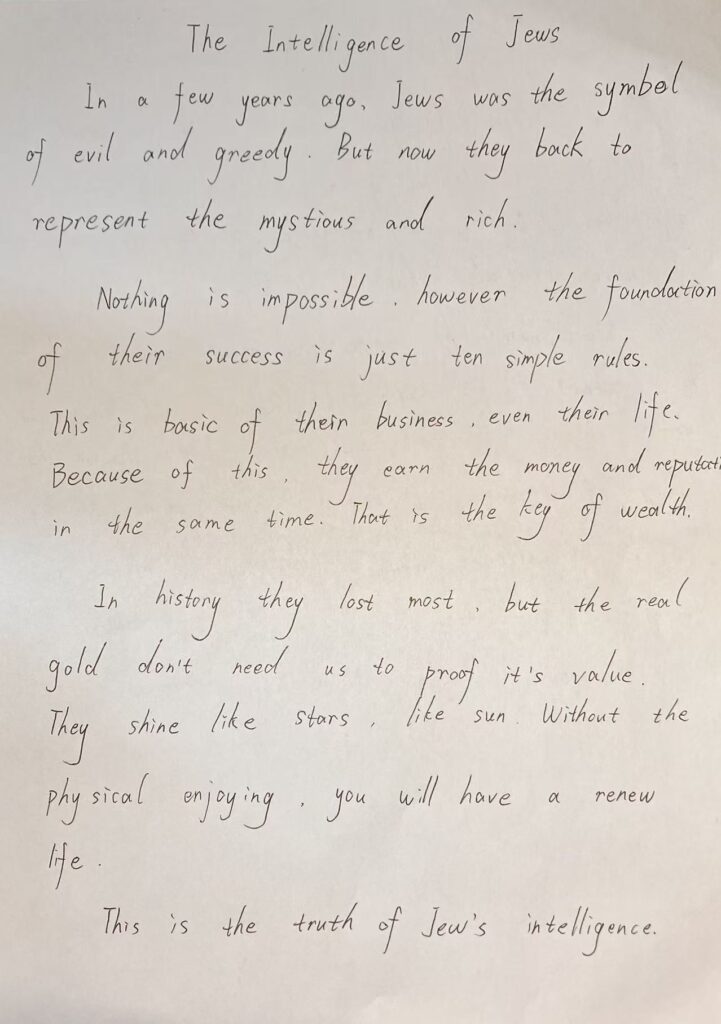 The Intelligence of Jews
In a few years ago, Jews was the symbol
of evil and greedy. But now they back to
represent the mystious and rich.
Nothing is impossible, however the foundation
of their success is just ten simple rules.
This is basic of their business, even their life.
Because of this, they earn the money and reputati
in the same time. That is the key of wealth.
In history they lost most, but the real
gold don't need us to proof it's value.
They shine like stars, like sun. Without the
physical enjoying, you will have a renew
life.
This is the truth of Jew's intelligence.